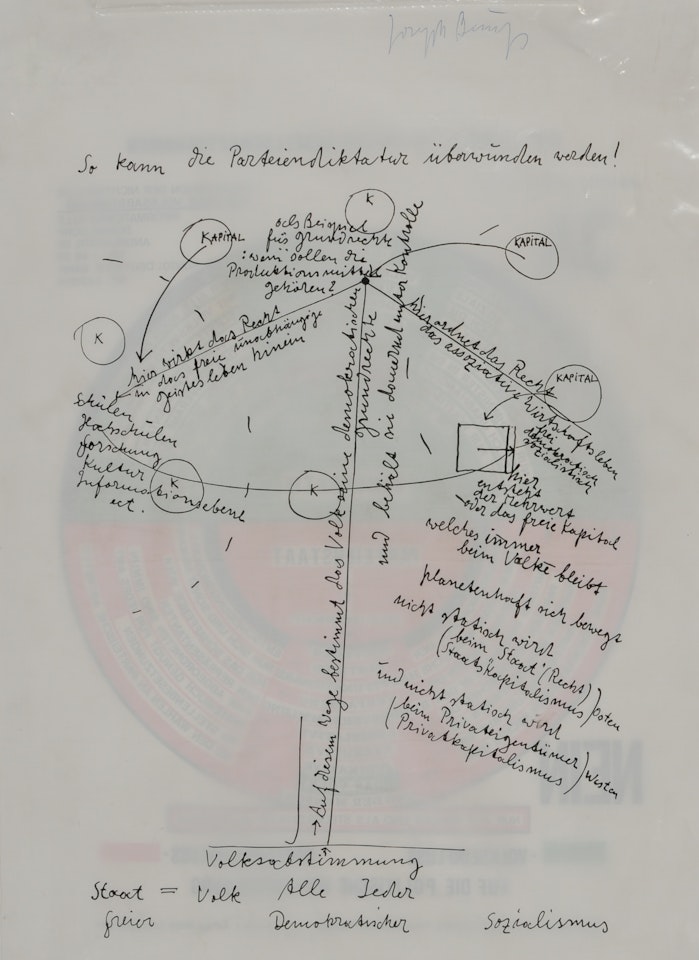 Joseph Beuys
So kann die Parteiendiktatur überwunden werden!
K
KAPITAL
als Beispiel
für Grundrechte
: wem sollen die
Produktionsmittel
gehören?
KAPITAL
K
hier wirkt das Recht
in das freie unabhängige
Geistesleben hinein
Schulen
Hochschulen
Forschung
Kultur
Informationsebene
ect.
K
K
hier ordnet das Recht
das assoziative Wirtschaftsleben
frei
demokratisch
sozialistisch
KAPITAL
hier
entsteht
der Mehrwert
oder das freie Kapital
welches immer
beim Volke bleibt
planetenhaft sich bewegt
nicht statisch wird
(beim "Staat" (Recht))
(Staatskapitalismus) Osten
und nicht statisch wird
(beim Privateigentümer)
(Privatkapitalismus) Westen
→ Auf diesem Wege bestimmt das Volk seine demokratischen
Grundrechte
und behält sie dauernd unter Kontrolle
Volksabstimmung
Staat = Volk Alle Jeder
freier Demokratischer Sozialismus
NEIN